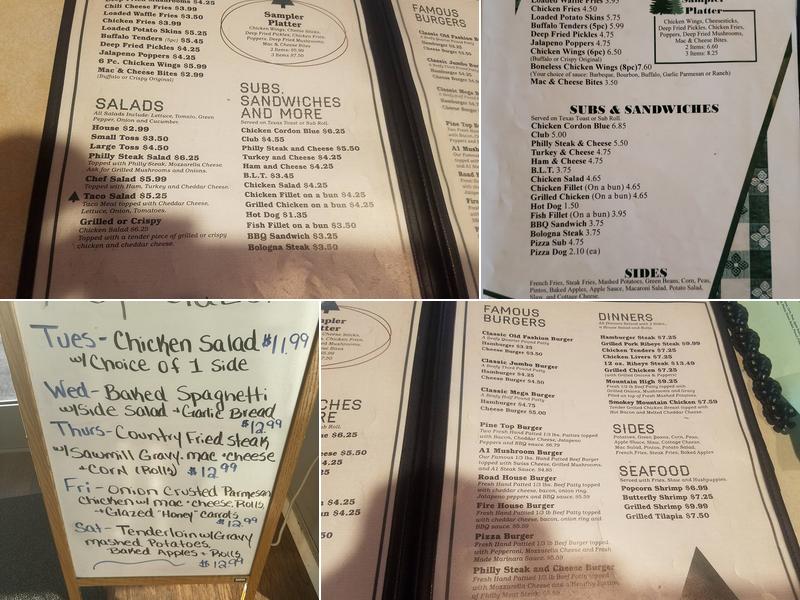 Chili Cheese Fries $3.99
Chicken Fries $3.99
Loaded Waffle Fries $3.50
Loaded Potato Skins $5.25
Buffalo Tenders (5pc) $5.45
Deep Fried Pickles $4.25
Jalapeno Poppers $4.25
6 Pc. Chicken Wings $5.99
Mac & Cheese Bites $2.99
(Buffalo or Crispy Original)
Sampler
Platter
Chicken Wings, Cheese Sticks,
Deep Fried Pickles, Chicken Fries,
Poppers, Deep Fried Mushrooms,
Mac & Cheese Bites
2 Items: $5.99
3 Items $7.50
SALADS
All Salads Include: Lettuce, Tomato, Green
Pepper, Onion and Cucumber.
House $2.99
Small Toss $3.50
Large Toss $4.50
Philly Steak Salad $6.25
Topped with Philly Steak, Mozzarella Cheese.
Ask for Grilled Mushrooms and Onions.
Chef Salad $5.99
Topped with Ham, Turkey and Cheddar Cheese.
Taco Salad $5.25
Taco Meat topped with Cheddar Cheese,
Lettuce, Onion, Tomatoes.
Grilled or Crispy
Chicken Salad $6.25
Topped with a tender piece of grilled or crispy
chicken and cheddar cheese.
SUBS,
SANDWICHES
AND MORE
Served on Texas Toast or Sub Roll.
Chicken Cordon Blue $6.25
Club $4.55
Philly Steak and Cheese $5.50
Turkey and Cheese $4.25
Ham and Cheese $4.25
B.L.T. $3.45
Chicken Salad $4.25
Chicken Fillet on a bun $4.25
Grilled Chicken on a bun $4.25
Hot Dog $1.35
Fish Fillet on a bun $3.50
BBQ Sandwich $3.25
Bologna Steak $3.50
FAMOUS
BURGERS
Classic Old Fashion
Classic Jumbo
Classic Mega
Pine Top
A1 Mush
Road
Fire
Chicken Fries 4.50
Loaded Potato Skins 5.75
Buffalo Tenders (5pc) 5.99
Deep Fried Pickles 4.75
Jalapeno Poppers 4.75
Chicken Wings (6pc) 6.50
(Buffalo or Crispy Original)
Boneless Chicken Wings (8pc)7.60
(Your choice of sauce: Barbeque, Bourbon, Buffalo, Garlic Parmesan or Ranch)
Mac & Cheese Bites 3.50
Sampler
Platter
Chicken Wings, Cheesesticks,
Deep Fried Pickles, Chicken Fries,
Poppers, Deep Fried Mushrooms,
Mac & Cheese Bites
2 Items: 6.60
3 Items: 8.25
SUBS & SANDWICHES
Served on Texas Toast or Sub Roll.
Chicken Cordon Blue 6.85
Club 5.00
Philly Steak & Cheese 5.50
Turkey & Cheese 4.75
Ham & Cheese 4.75
B.L.T. 3.75
Chicken Salad 4.65
Chicken Fillet (On a bun) 4.65
Grilled Chicken (On a bun) 4.65
Hot Dog 1.50
Fish Fillet (On a bun) 3.95
BBQ Sandwich 3.75
Bologna Steak 3.75
Pizza Sub 4.75
Pizza Dog 2.10 (ea)
SIDES
French Fries, Steak Fries, Mashed Potatoes, Green Beans, Corn, Peas,
Pintos, Baked Apples, Apple Sauce, Macaroni Salad, Potato Salad,
Slaw, and Cottage Cheese.
Tues- Chicken Salad $11.99
w/ Choice of 1 side
Wed- Baked Spaghetti
w/Side Salad + Garlic Bread
$12.99
Thurs- Country Fried steak
w/ Sawmill Gravy. mac + cheese
+ Corn (Rolls) $12.99
Fri- Onion Crusted Parmesan
Chicken w/ mac + cheese, Rolls
+ Glazed "Honey" Carrots
$12.99
Sat- Tenderloin w/Gravy
mashed Potatoes,
Baked Apples + Rolls
$12.99
FAMOUS
BURGERS
Classic Old Fashion Burger
A Beefy Quarter Pound Patty
Hamburger $3.25
Cheese Burger $3.50
Classic Jumbo Burger
A Beefy Third Pound Patty
Hamburger $4.25
Cheese Burger $4.50
Classic Mega Burger
A Beefy Half Pound Patty
Hamburger $4.75
Cheese Burger $5.00
Pine Top Burger
Two Fresh Hand Patted 1/3 lbs. Patties topped
with Bacon, Cheddar Cheese, Jalapeno
Peppers and BBQ sauce. $6.79
A1 Mushroom Burger
Our Famous 1/3 lbs. Hand Patted Beef Burger
topped with Swiss Cheese, Grilled Mushrooms,
and A1 Steak Sauce. $4.85
Road House Burger
Fresh Hand Patted 1/3 lbs. Beef Burger topped
with cheddar cheese, bacon, onion ring,
Jalapeno peppers and BBQ sauce. $5.59
Fire House Burger
Fresh Hand Patted 1/3 lb Beef Burger topped
with cheddar cheese, bacon, onion ring and
BBQ sauce. $5.59
Pizza Burger
Fresh Hand Patted 1/3 lb Beef Burger Topped
with Pepperoni, Mozzarella Cheese and Fresh
Made Marinara Sauce. $5.59
Philly Steak and Cheese Burger
Fresh Hand Patted 1/3 lb Beef Patty topped
DINNERS
Hamburger Steak $7.25
Grilled Pork Ribeye Steak $9.99
Chicken Tenders $7.25
Chicken Livers $7.25
12 oz. Ribeye Steak $13.49
Grilled Chicken $7.25
(with Grilled Onions & Peppers)
Mountain High $9.25
Fresh 1/2 lb Beef Patty topped with
Grilled Onions, Mushrooms and Gravy
Piled on top of Fresh Mashed Potatoes.
Smokey Mountain Chicken $7.59
Tender Grilled Chicken Breast topped with
Hot Bacon and Melted Cheddar Cheese.
SIDES
Potatoes, Green Beans, Corn, Peas,
Apple Sauce, Slaw, Cottage Cheese,
Mac Salad, Pintos, Potato Salad,
French Fries, Steak Fries, Baked Apples
SEAFOOD
Served with Fries, Slaw and Hushpuppies.
Popcorn Shrimp $6.99
Butterfly Shrimp $7.25
Grilled Shrimp $9.99
Grilled Tilapia $7.50